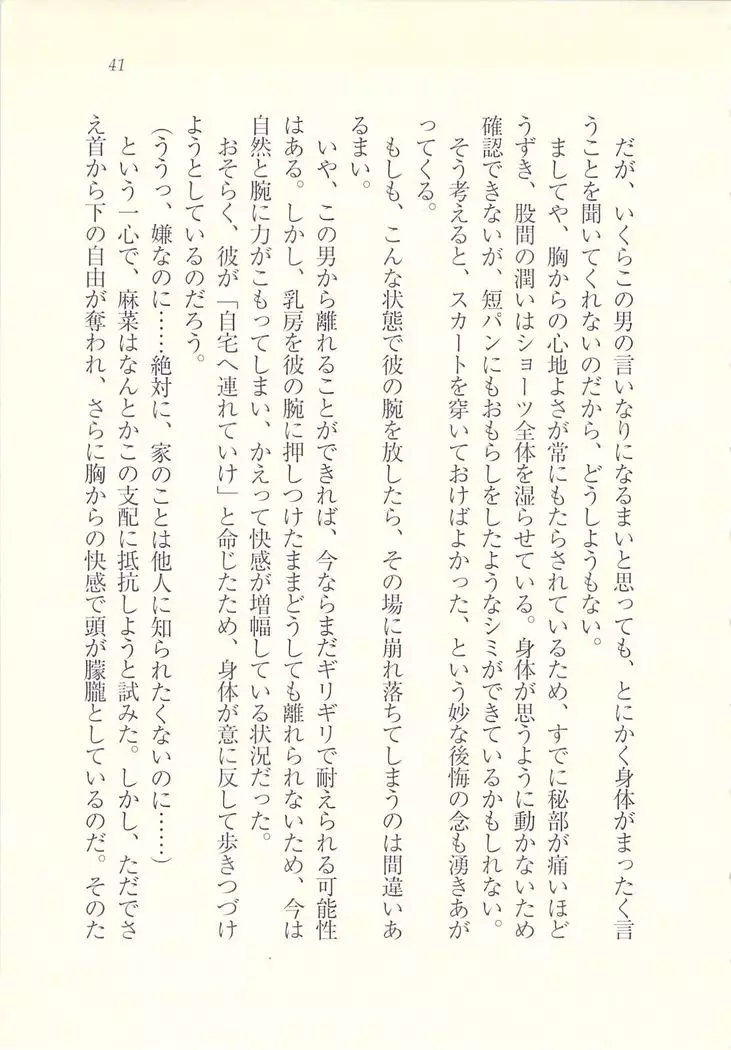 41
だが、いくらこの男の言いなりになるまいと思っても、とにかく身体がまったく言
うことを聞いてくれないのだから、どうしようもない。
ましてや、胸からの心地よさが常にもたらされているため、すでに秘部が痛いほど
うずき、股間の潤いはショーツ全体を湿らせている。身体が思うように動かないため
確認できないが、短パンにもおもらしをしたようなシミができているかもしれない。
そう考えると、スカートを穿いておけばよかった、という妙な後悔の念も湧きあが
ってくる。
もしも、こんな状態で彼の腕を放したら、その場に崩れ落ちてしまうのは間違いあ
るまい。
いや、この男から離れることができれば、今ならまだギリギリで耐えられる可能性
はある。しかし、乳房を彼の腕に押しつけたままどうしても離れられないため、今は
自然と腕に力がこもってしまい、かえって快感が増幅している状況だった。
おそらく、彼が「自宅へ連れていけ」と命じたため、身体が意に反して歩きつづけ
ようとしているのだろう。
（ううっ、嫌なのに……絶対に、家のことは他人に知られたくないのに……）
という一心で、麻菜はなんとかこの支配に抵抗しようと試みた。しかし、ただでさ
え首から下の自由が奪われ、さらに胸からの快感で頭が朦朧としているのだ。そのた